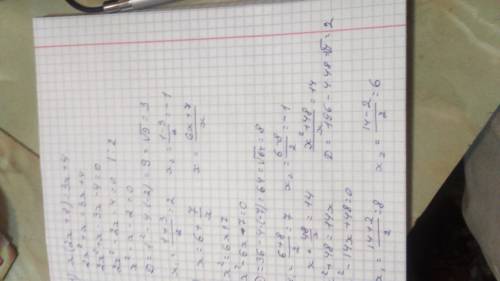 x(2x+1)=3x+4
2x²+x=3x+4
2x²+x-3x-4=0
2x²-2x-4=0 |:2
x²-x-2=0
D=1²-4·(-2)=9=√9=3
x₁=(1+3)/2=2 x₂=(1-3)/2=-1
x=6+7/x x=(6x+7)/x
x²=6x+7
x²-6x-7=0
D=36-4·(-7)=64=√64=8
x₁=(6+8)/2=7 x₂=(6-8)/2=-1
x+48/x=14 (x²+48)/x=14
x²+48=14x
x²-14x+48=0 D=196-4·48=√4=2
x₁=(14+2)/2=8 x₂=(14-2)/2=6